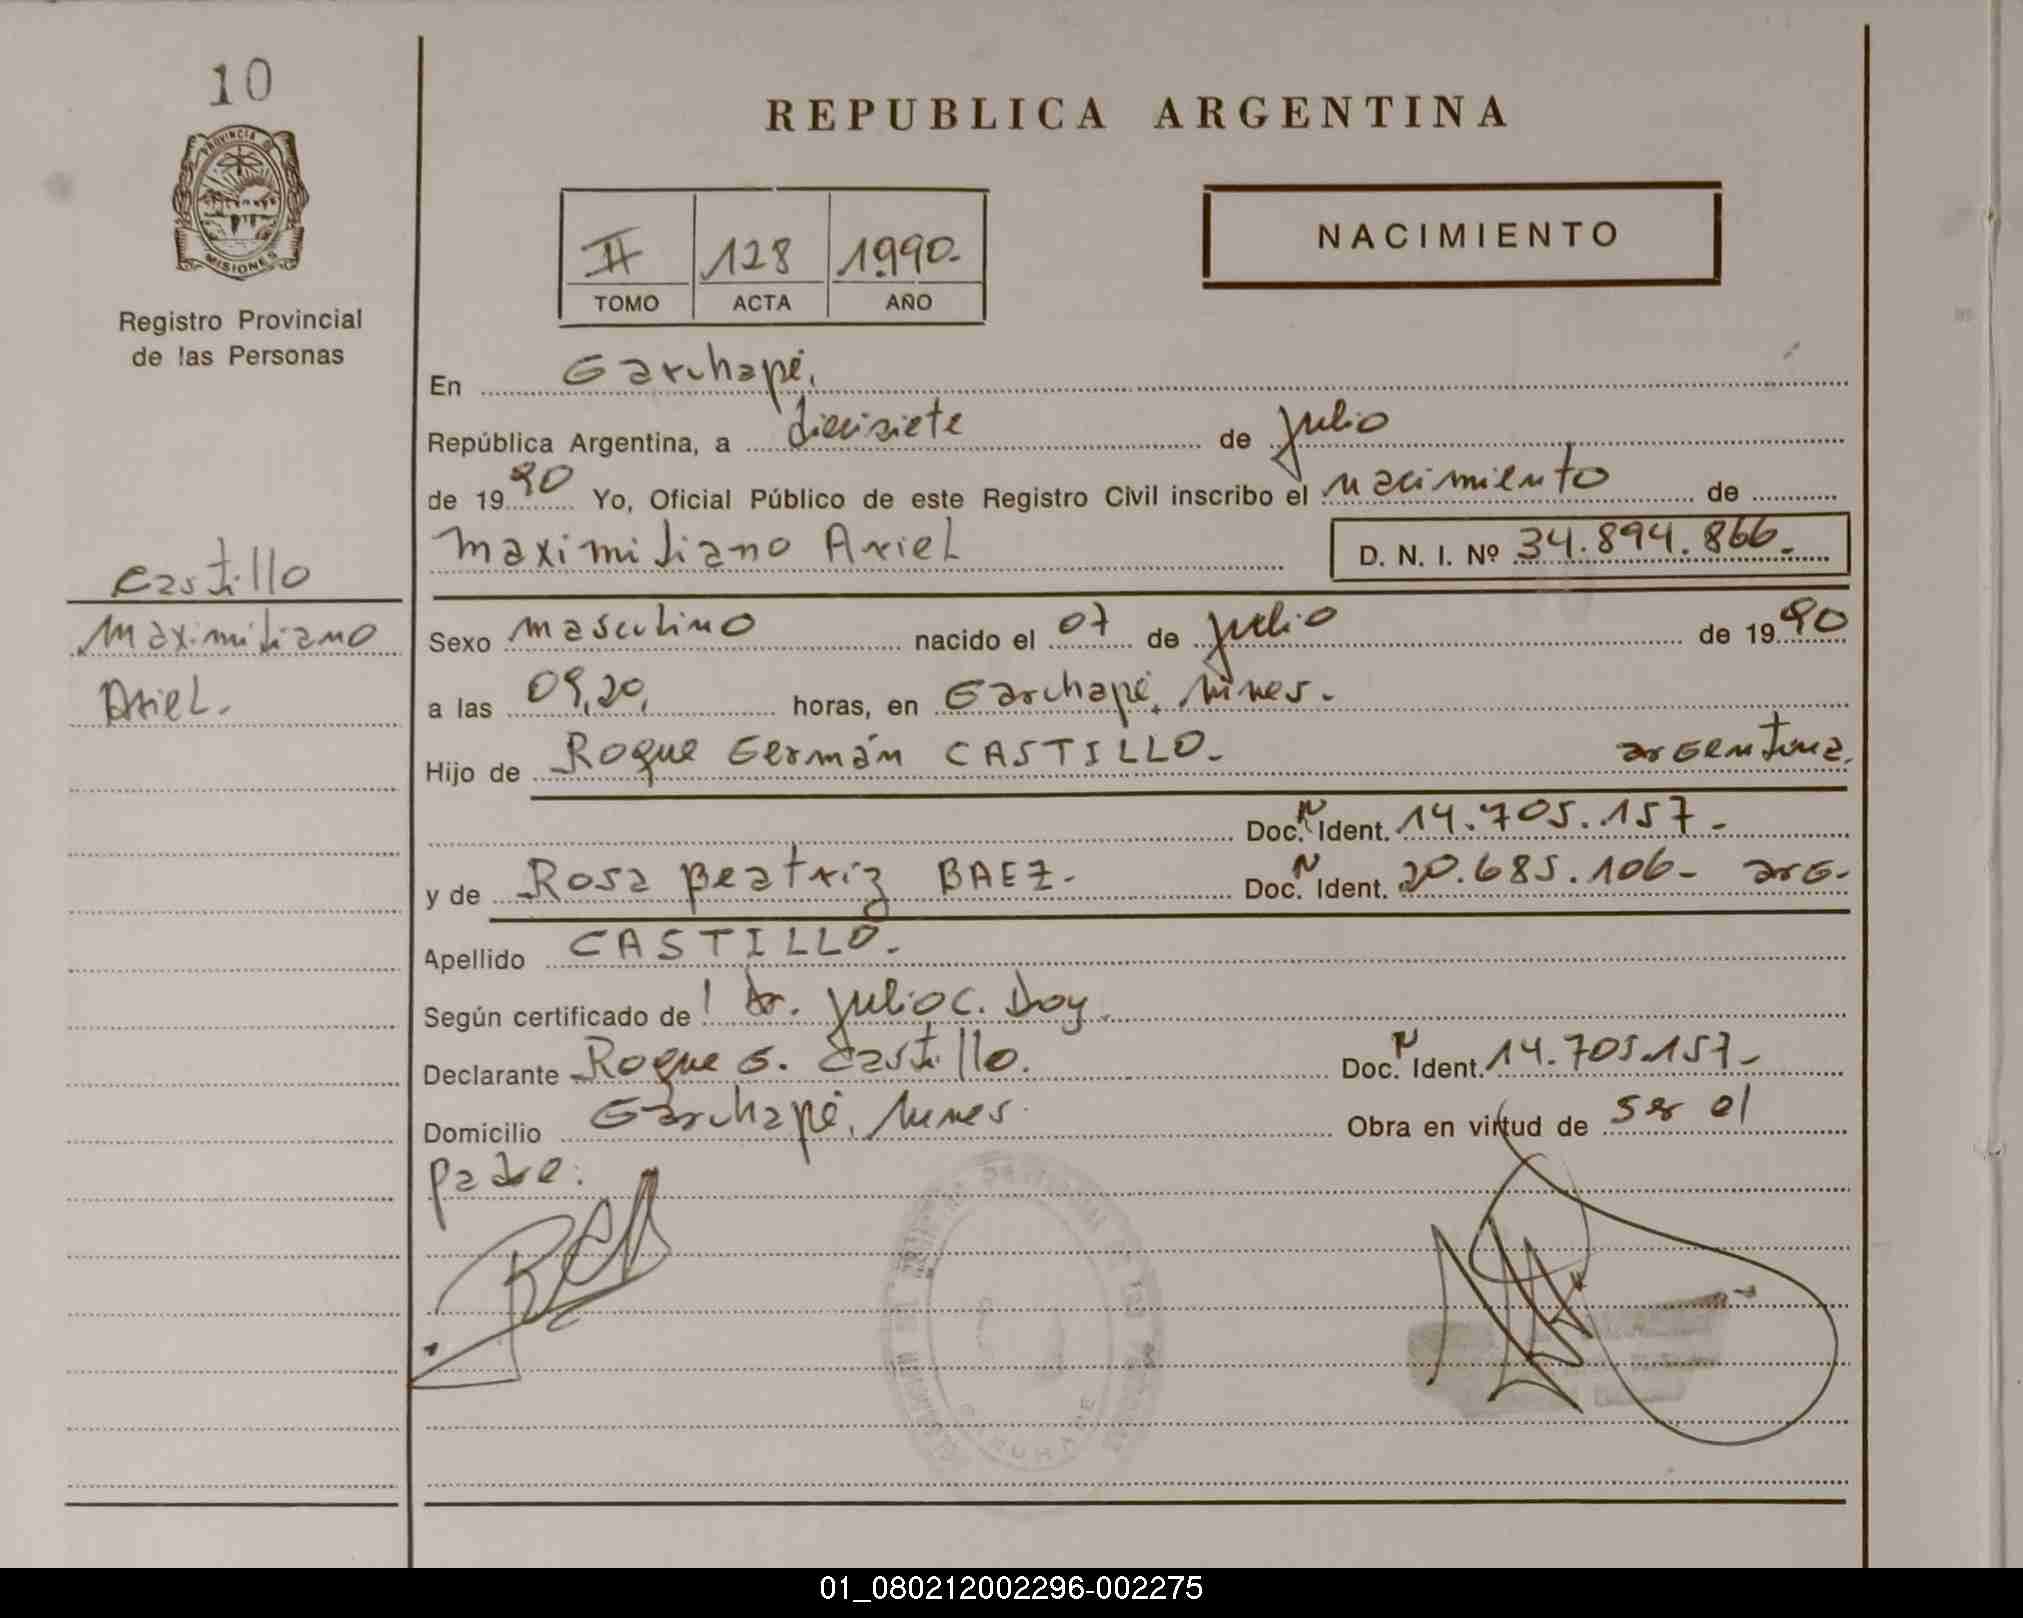 10
PROVINCIA DE
MISIONES
Registro Provincial
de las Personas
Castillo
Maximiliano
Ariel.
REPUBLICA ARGENTINA
NACIMIENTO
II 128 1990.-
TOMO ACTA AÑO
En Garuhapé,
República Argentina, a diecisiete de julio
de 1990 Yo, Oficial Público de este Registro Civil inscribo el nacimiento de
Maximiliano Ariel D. N. I. Nº 34.894.866.-
Sexo masculino nacido el 07 de julio de 1990
a las 09,20, horas, en Garuhapé, Mnes.-
Hijo de Roque Germán CASTILLO.- argentina.
Doc. N Ident. 14.705.157.-
y de Rosa Beatriz BAEZ.- Doc. N Ident. 20.685.106.- arg.-
Apellido CASTILLO.-
Según certificado del Dr. Julio C. Doy.
Declarante Roque G. Castillo. Doc. N Ident. 14.705.157.-
Domicilio Garuhapé, Mnes. Obra en virtud de ser el
padre.
GARUHAPE
01_080212002296-002275